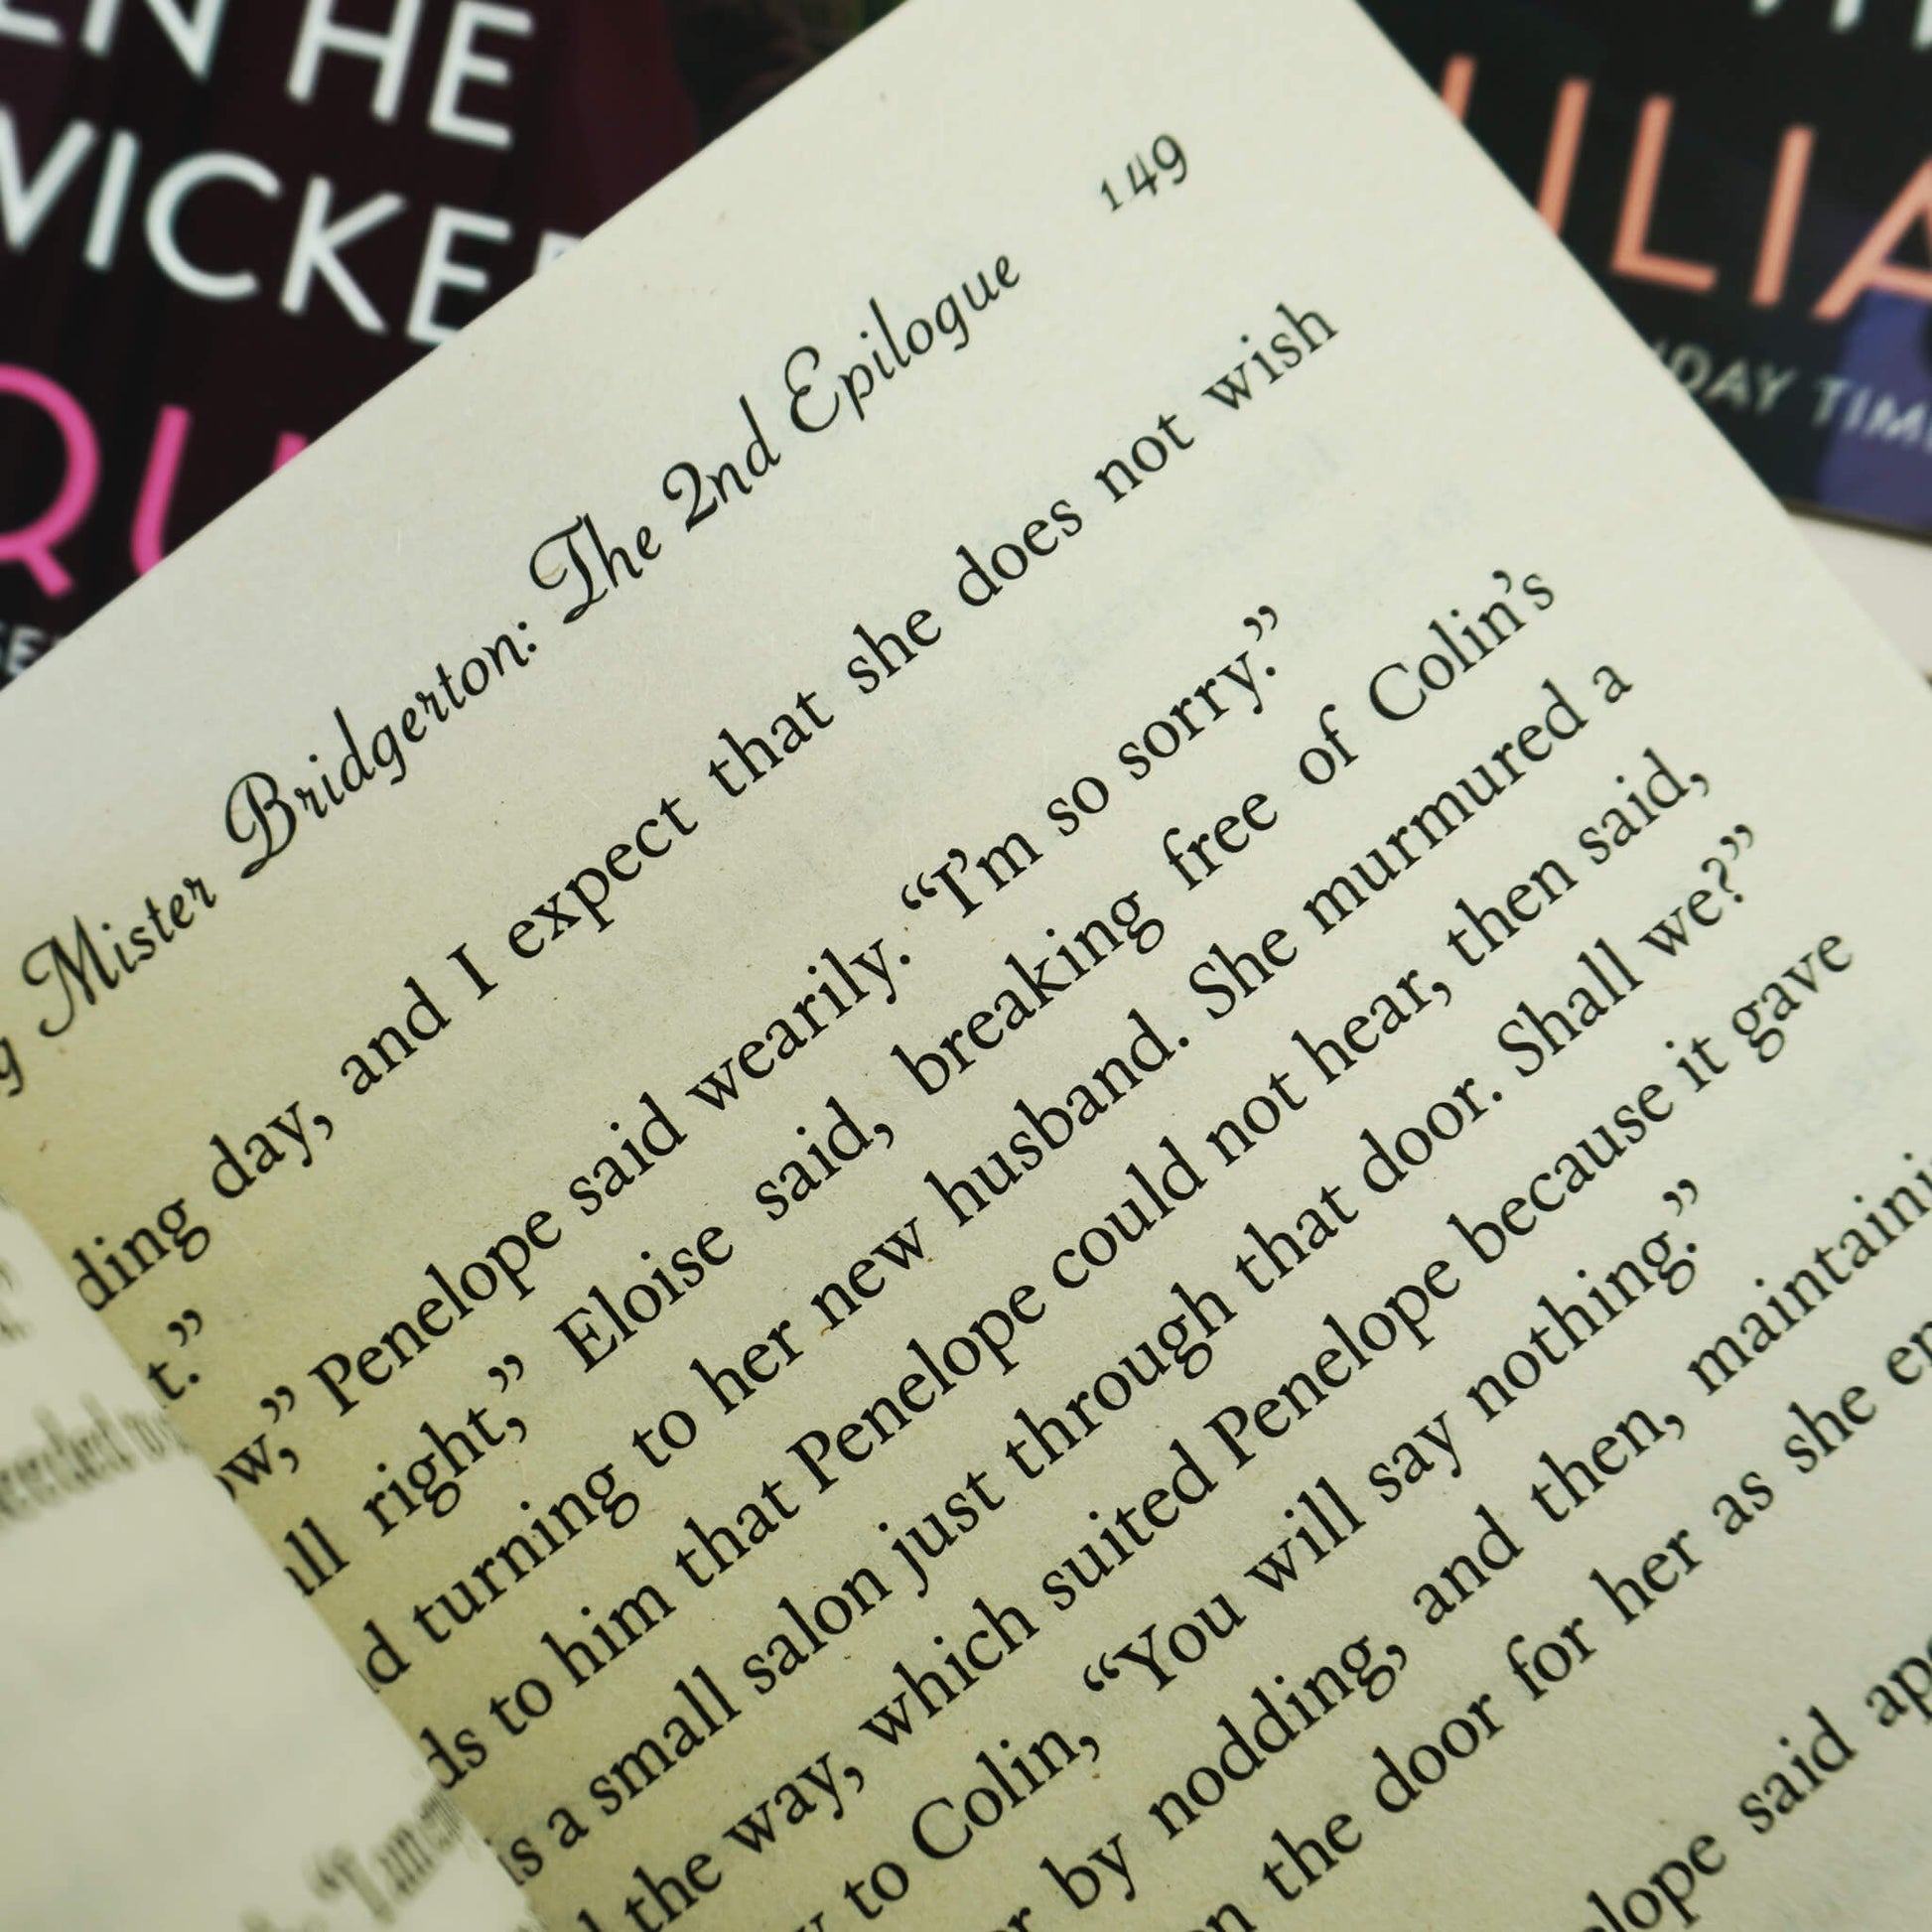 EN HE
WICKE
QU
ULIA
DAY TIM
Mister Bridgerton: The 2nd Epilogue 149
ding day, and I expect that she does not wish
t.”
ow,” Penelope said wearily. “I’m so sorry.”
all right,” Eloise said, breaking free of Colin’s
nd turning to her new husband. She murmured a
ds to him that Penelope could not hear, then said,
is a small salon just through that door. Shall we?”
the way, which suited Penelope because it gave
y to Colin, “You will say nothing.”
r by nodding, and then, maintaini
n the door for her as she en
elope said apo